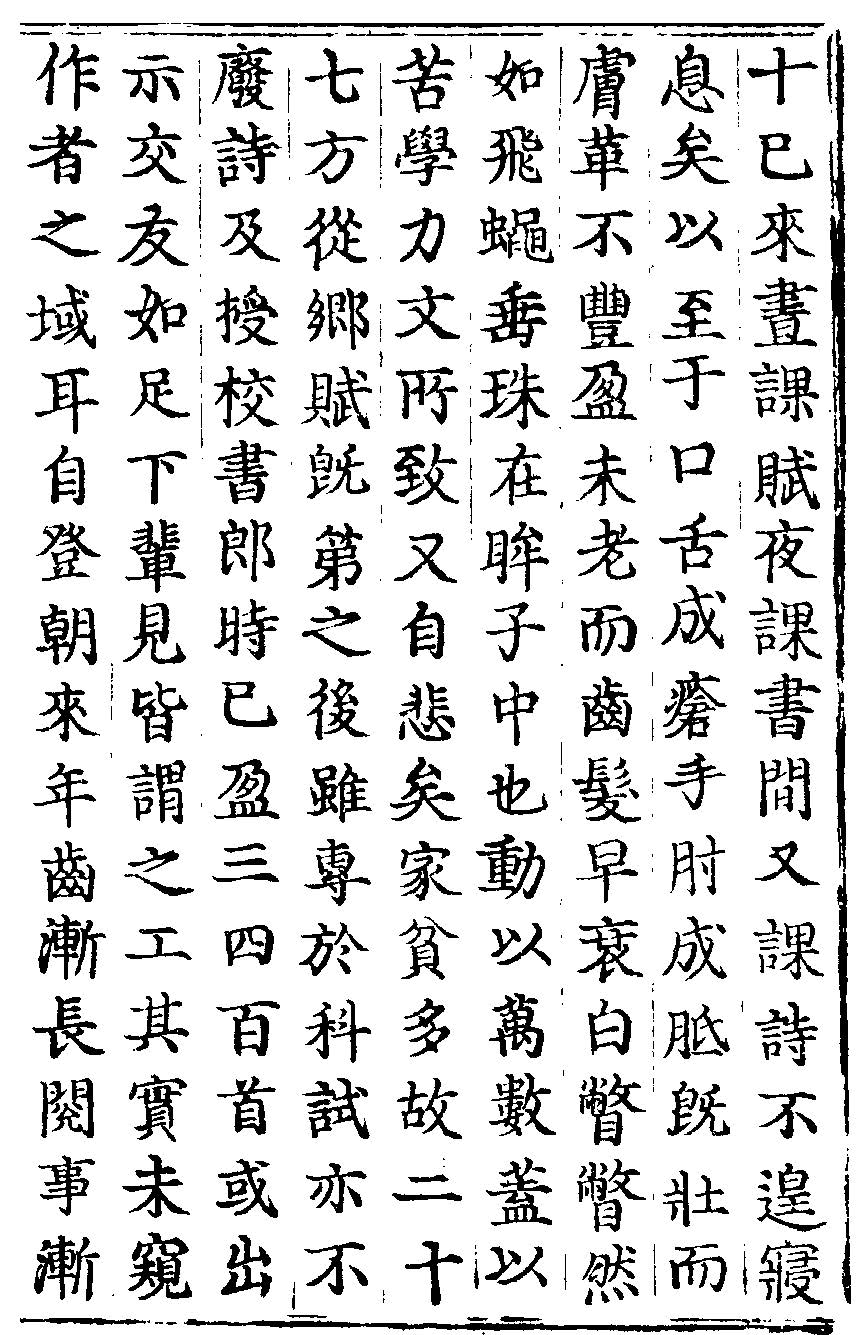 十已來晝課賦夜課書間又課詩不遑寢
息矣以至于口舌成瘡手肘成胝既壯而
膚革不豐盈未老而齒髮早衰白瞥瞥然
如飛蠅垂珠在眸子中也動以萬數蓋以
苦學力文所致又自悲矣家貧多故二十
七方從鄉賦既第之後雖專於科試亦不
廢詩及授校書郎時已盈三四百首或出
示交友如足下輩見皆謂之工其實未窺
作者之域耳自登朝來年齒漸長閱事漸